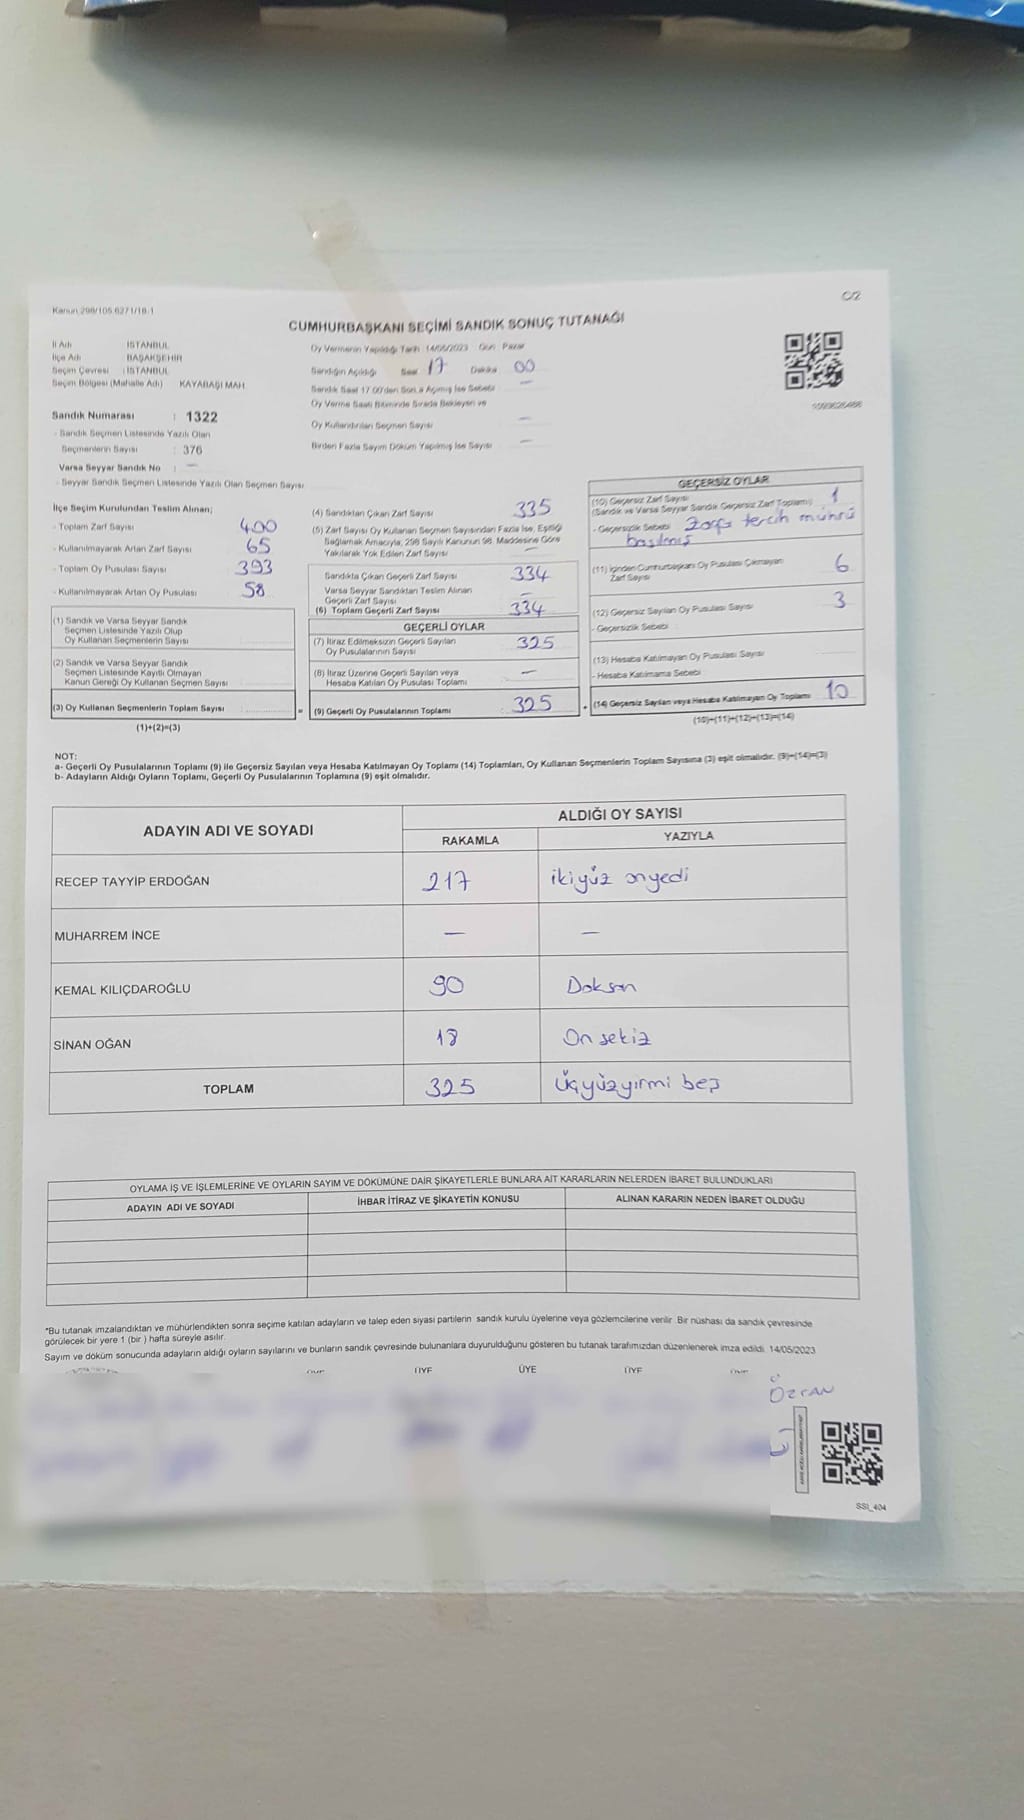 Kanun 298/105 6271/18.1
C/2
CUMHURBAŞKANI SEÇİMİ SANDIK SONUÇ TUTANAĞI
İl Adı : İSTANBUL
İlçe Adı : BAŞAKŞEHİR
Seçim Çevresi : İSTANBUL
Seçim Bölgesi (Mahalle Adı) KAYABAŞI MAH.
Oy Vermenin Yapıldığı Tarih : 14/05/2023 Gün : Pazar
Sandığın Açıldığı Saat 17 Dakika 00
Sandık Saat 17.00'den Sonra Açılmış İse Sebebi : —
Oy Verme Saati Bitiminde Sırada Bekleyen ve
Oy Kullandırılan Seçmen Sayısı —
Birden Fazla Sayım Döküm Yapılmış İse Sayısı —
Sandık Numarası : 1322
- Sandık Seçmen Listesinde Yazılı Olan
Seçmenlerin Sayısı : 376
Varsa Seyyar Sandık No : —
- Seyyar Sandık Seçmen Listesinde Yazılı Olan Seçmen Sayısı
İlçe Seçim Kurulundan Teslim Alınan;
- Toplam Zarf Sayısı 400
- Kullanılmayarak Artan Zarf Sayısı 65
- Toplam Oy Pusulası Sayısı 393
- Kullanılmayarak Artan Oy Pusulası 58
(1) Sandık ve Varsa Seyyar Sandık
Seçmen Listesinde Yazılı Olup
Oy Kullanan Seçmenlerin Sayısı
(2) Sandık ve Varsa Seyyar Sandık
Seçmen Listesinde Kayıtlı Olmayan
Kanun Gereği Oy Kullanan Seçmen Sayısı
(3) Oy Kullanan Seçmenlerin Toplam Sayısı
(1)+(2)=(3)
(4) Sandıktan Çıkan Zarf Sayısı 335
(5) Zarf Sayısı Oy Kullanan Seçmen Sayısından Fazla İse, Eşitliği
Sağlamak Amacıyla, 298 Sayılı Kanunun 98. Maddesine Göre
Yakılarak Yok Edilen Zarf Sayısı —
Sandıkta Çıkan Geçerli Zarf Sayısı 334
Varsa Seyyar Sandıktan Teslim Alınan
Geçerli Zarf Sayısı —
(6) Toplam Geçerli Zarf Sayısı 334
GEÇERLİ OYLAR
(7) İtiraz Edilmeksizin Geçerli Sayılan
Oy Pusulalarının Sayısı 325
(8) İtiraz Üzerine Geçerli Sayılan veya
Hesaba Katılan Oy Pusulası Toplamı —
= (9) Geçerli Oy Pusulalarının Toplamı 325
GEÇERSİZ OYLAR
(10) Geçersiz Zarf Sayısı
(Sandık ve Varsa Seyyar Sandık Geçersiz Zarf Toplamı) 1
- Geçersizlik Sebebi Zarfa tercih mührü
basılmış
(11) İçinden Cumhurbaşkanı Oy Pusulası Çıkmayan
Zarf Sayısı 6
(12) Geçersiz Sayılan Oy Pusulası Sayısı 3
- Geçersizlik Sebebi
(13) Hesaba Katılmayan Oy Pusulası Sayısı
- Hesaba Katılmama Sebebi
+ (14) Geçersiz Sayılan veya Hesaba Katılmayan Oy Toplamı 10
(10)+(11)+(12)+(13)=(14)
NOT:
a- Geçerli Oy Pusulalarının Toplamı (9) ile Geçersiz Sayılan veya Hesaba Katılmayan Oy Toplamı (14) Toplamları, Oy Kullanan Seçmenlerin Toplam Sayısına (3) eşit olmalıdır. (9)+(14)=(3)
b- Adayların Aldığı Oyların Toplamı, Geçerli Oy Pusulalarının Toplamına (9) eşit olmalıdır.
ADAYIN ADI VE SOYADI
ALDIĞI OY SAYISI
RAKAMLA YAZIYLA
RECEP TAYYİP ERDOĞAN 217 ikiyüz onyedi
MUHARREM İNCE — —
KEMAL KILIÇDAROĞLU 90 Doksan
SİNAN OĞAN 18 On sekiz
TOPLAM 325 Üçyüzyirmi beş
OYLAMA İŞ VE İŞLEMLERİNE VE OYLARIN SAYIM VE DÖKÜMÜNE DAİR ŞİKAYETLERLE BUNLARA AİT KARARLARIN NELERDEN İBARET BULUNDUKLARI
ADAYIN ADI VE SOYADI İHBAR İTİRAZ VE ŞİKAYETİN KONUSU ALINAN KARARIN NEDEN İBARET OLDUĞU
*Bu tutanak imzalandıktan ve mühürlendikten sonra seçime katılan adayların ve talep eden siyasi partilerin sandık kurulu üyelerine veya gözlemcilerine verilir. Bir nüshası da sandık çevresinde
görülecek bir yere 1 (bir ) hafta süreyle asılır.
Sayım ve döküm sonucunda adayların aldığı oyların sayılarını ve bunların sandık çevresinde bulunanlara duyurulduğunu gösteren bu tutanak tarafımızdan düzenlenerek imza edildi. 14/05/2023
ÜYE ÜYE ÜYE ÜYE ÜYE
ÖZCAN
SSI_404